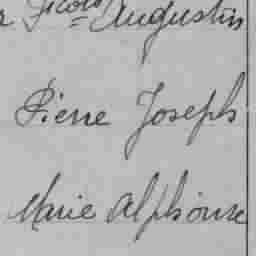 Augustin
Pierre Joseph
Marie Alphonse